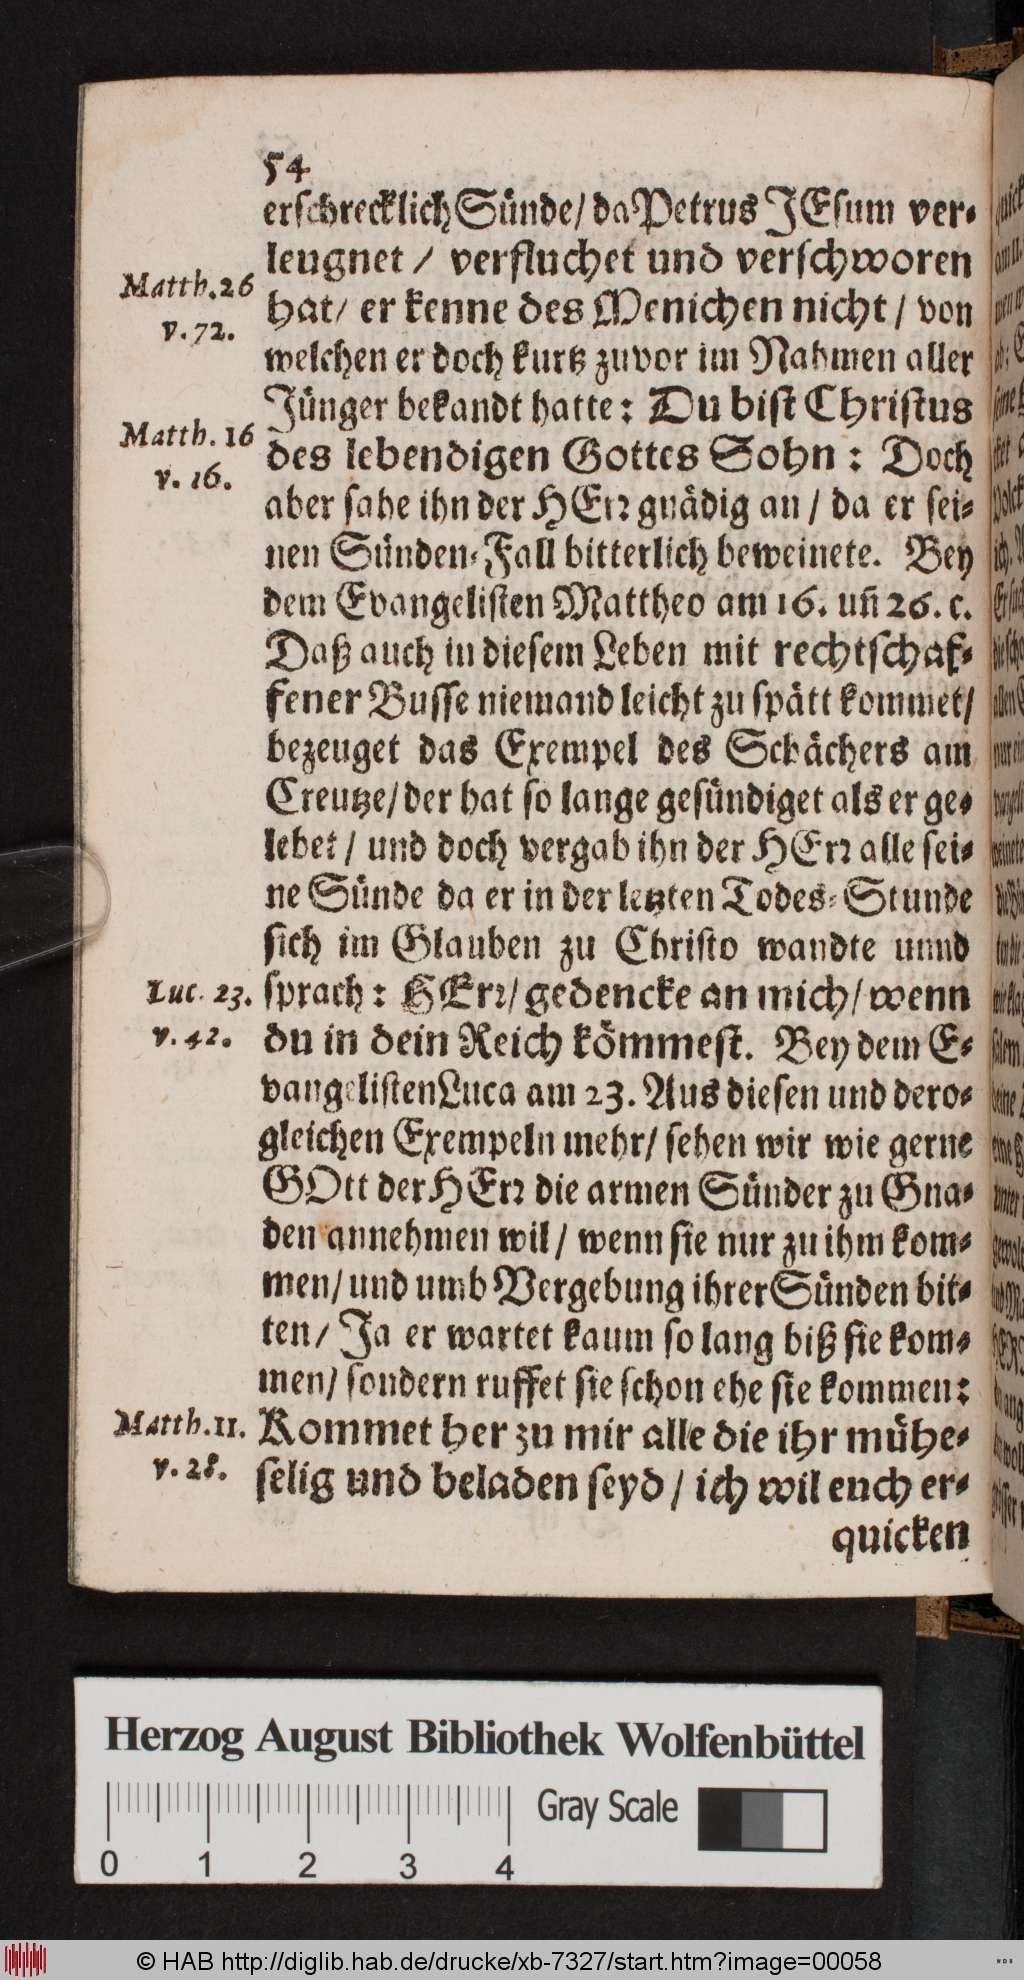 54
erschrecklich Sünde/ da Petrus JEsum ver-
leugnet / verfluchet und verschworen
Matth. 26
v. 72.
hat/ er kenne des Menschen nicht / von
welchen er doch kurtz zuvor im Nahmen aller
Jünger bekandt hatte: Du bist Christus
Matth. 16
v. 16.
des lebendigen Gottes Sohn: Doch
aber sahe ihn der HErr gnädig an / da er sei-
nen Sünden-Fall bitterlich beweinete. Bey
dem Evangelisten Mattheo am 16. uñ 26. c.
Daß auch in diesem Leben mit rechtschaf-
fener Busse niemand leicht zu spätt kommet/
bezeuget das Exempel des Schächers am
Creutze/ der hat so lange gesündiget als er ge-
lebet / und doch vergab ihn der HErr alle sei-
ne Sünde da er in der letzten Todes-Stunde
sich im Glauben zu Christo wandte unnd
Luc. 23.
v. 42.
sprach: HErr/ gedencke an mich/ wenn
du in dein Reich kömmest. Bey dem E-
vangelisten Luca am 23. Aus diesen und dero-
gleichen Exempeln mehr/ sehen wir wie gerne
GOtt der HErr die armen Sünder zu Gna-
den annehmen wil / wenn sie nur zu ihm kom-
men/ und umb Vergebung ihrer Sünden bit-
ten/ Ja er wartet kaum so lang biß sie kom-
men/ sondern ruffet sie schon ehe sie kommen:
Matth. 11.
v. 28.
Kommet her zu mir alle die ihr mühe-
selig und beladen seyd / ich wil euch er-
quicken
Herzog August Bibliothek Wolfenbüttel
0 1 2 3 4
Gray Scale
© HAB http://diglib.hab.de/drucke/xb-7327/start.htm?image=00058